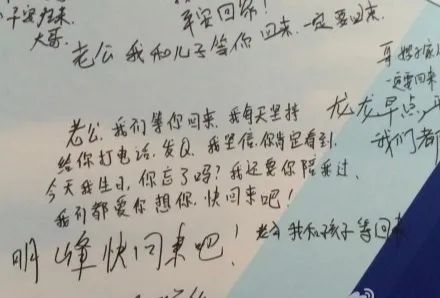 平安回家!
大哥.
一定要回来.
老公我和儿子等你回来.
一定要回来
老公.我们等你回来.我每天坚持
给你打电话,发Q.我坚信.你肯定看到.
今天我生日,你忘了吗?我还要你陪我过.
我们都爱你想你,快回来吧!
龙龙早点
我们都
快回来吧!
我和孩子等回来